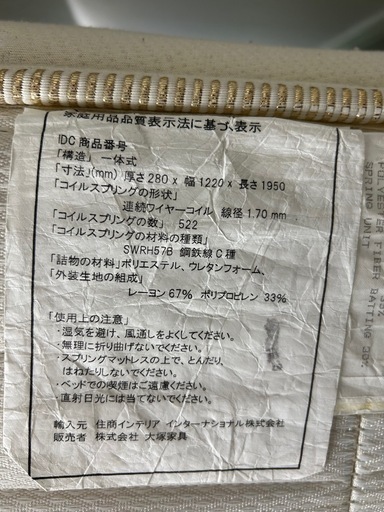 家庭用品品質表示法に基づ、表示
IDC商品番号
「構造」 一体式
「寸法」(mm) 厚さ280 x 幅1220 x 長さ1950
「コイルスプリングの形状」
連続ワイヤーコイル 線径1.70mm
「コイルスプリングの数」 522
「コイルスプリングの材料の種類」
SWRH57B 鋼鉄線C種
「詰物の材料」ポリエステル、ウレタンフォーム、
「外装生地の組成」
レーヨン 67% ポリプロピレン 33%
「使用上の注意」
・湿気を避け、風通しをよくしてください。
・無理に折り曲げないでください。
・スプリングマットレスの上で、とんだり、
はねたりしないでください。
・ベッドでの喫煙はご遠慮ください。
・直射日光には当てないでください。
輸入元 住商インテリア インターナショナル株式会社
販売者 株式会社 大塚家具
SPRING UNIT